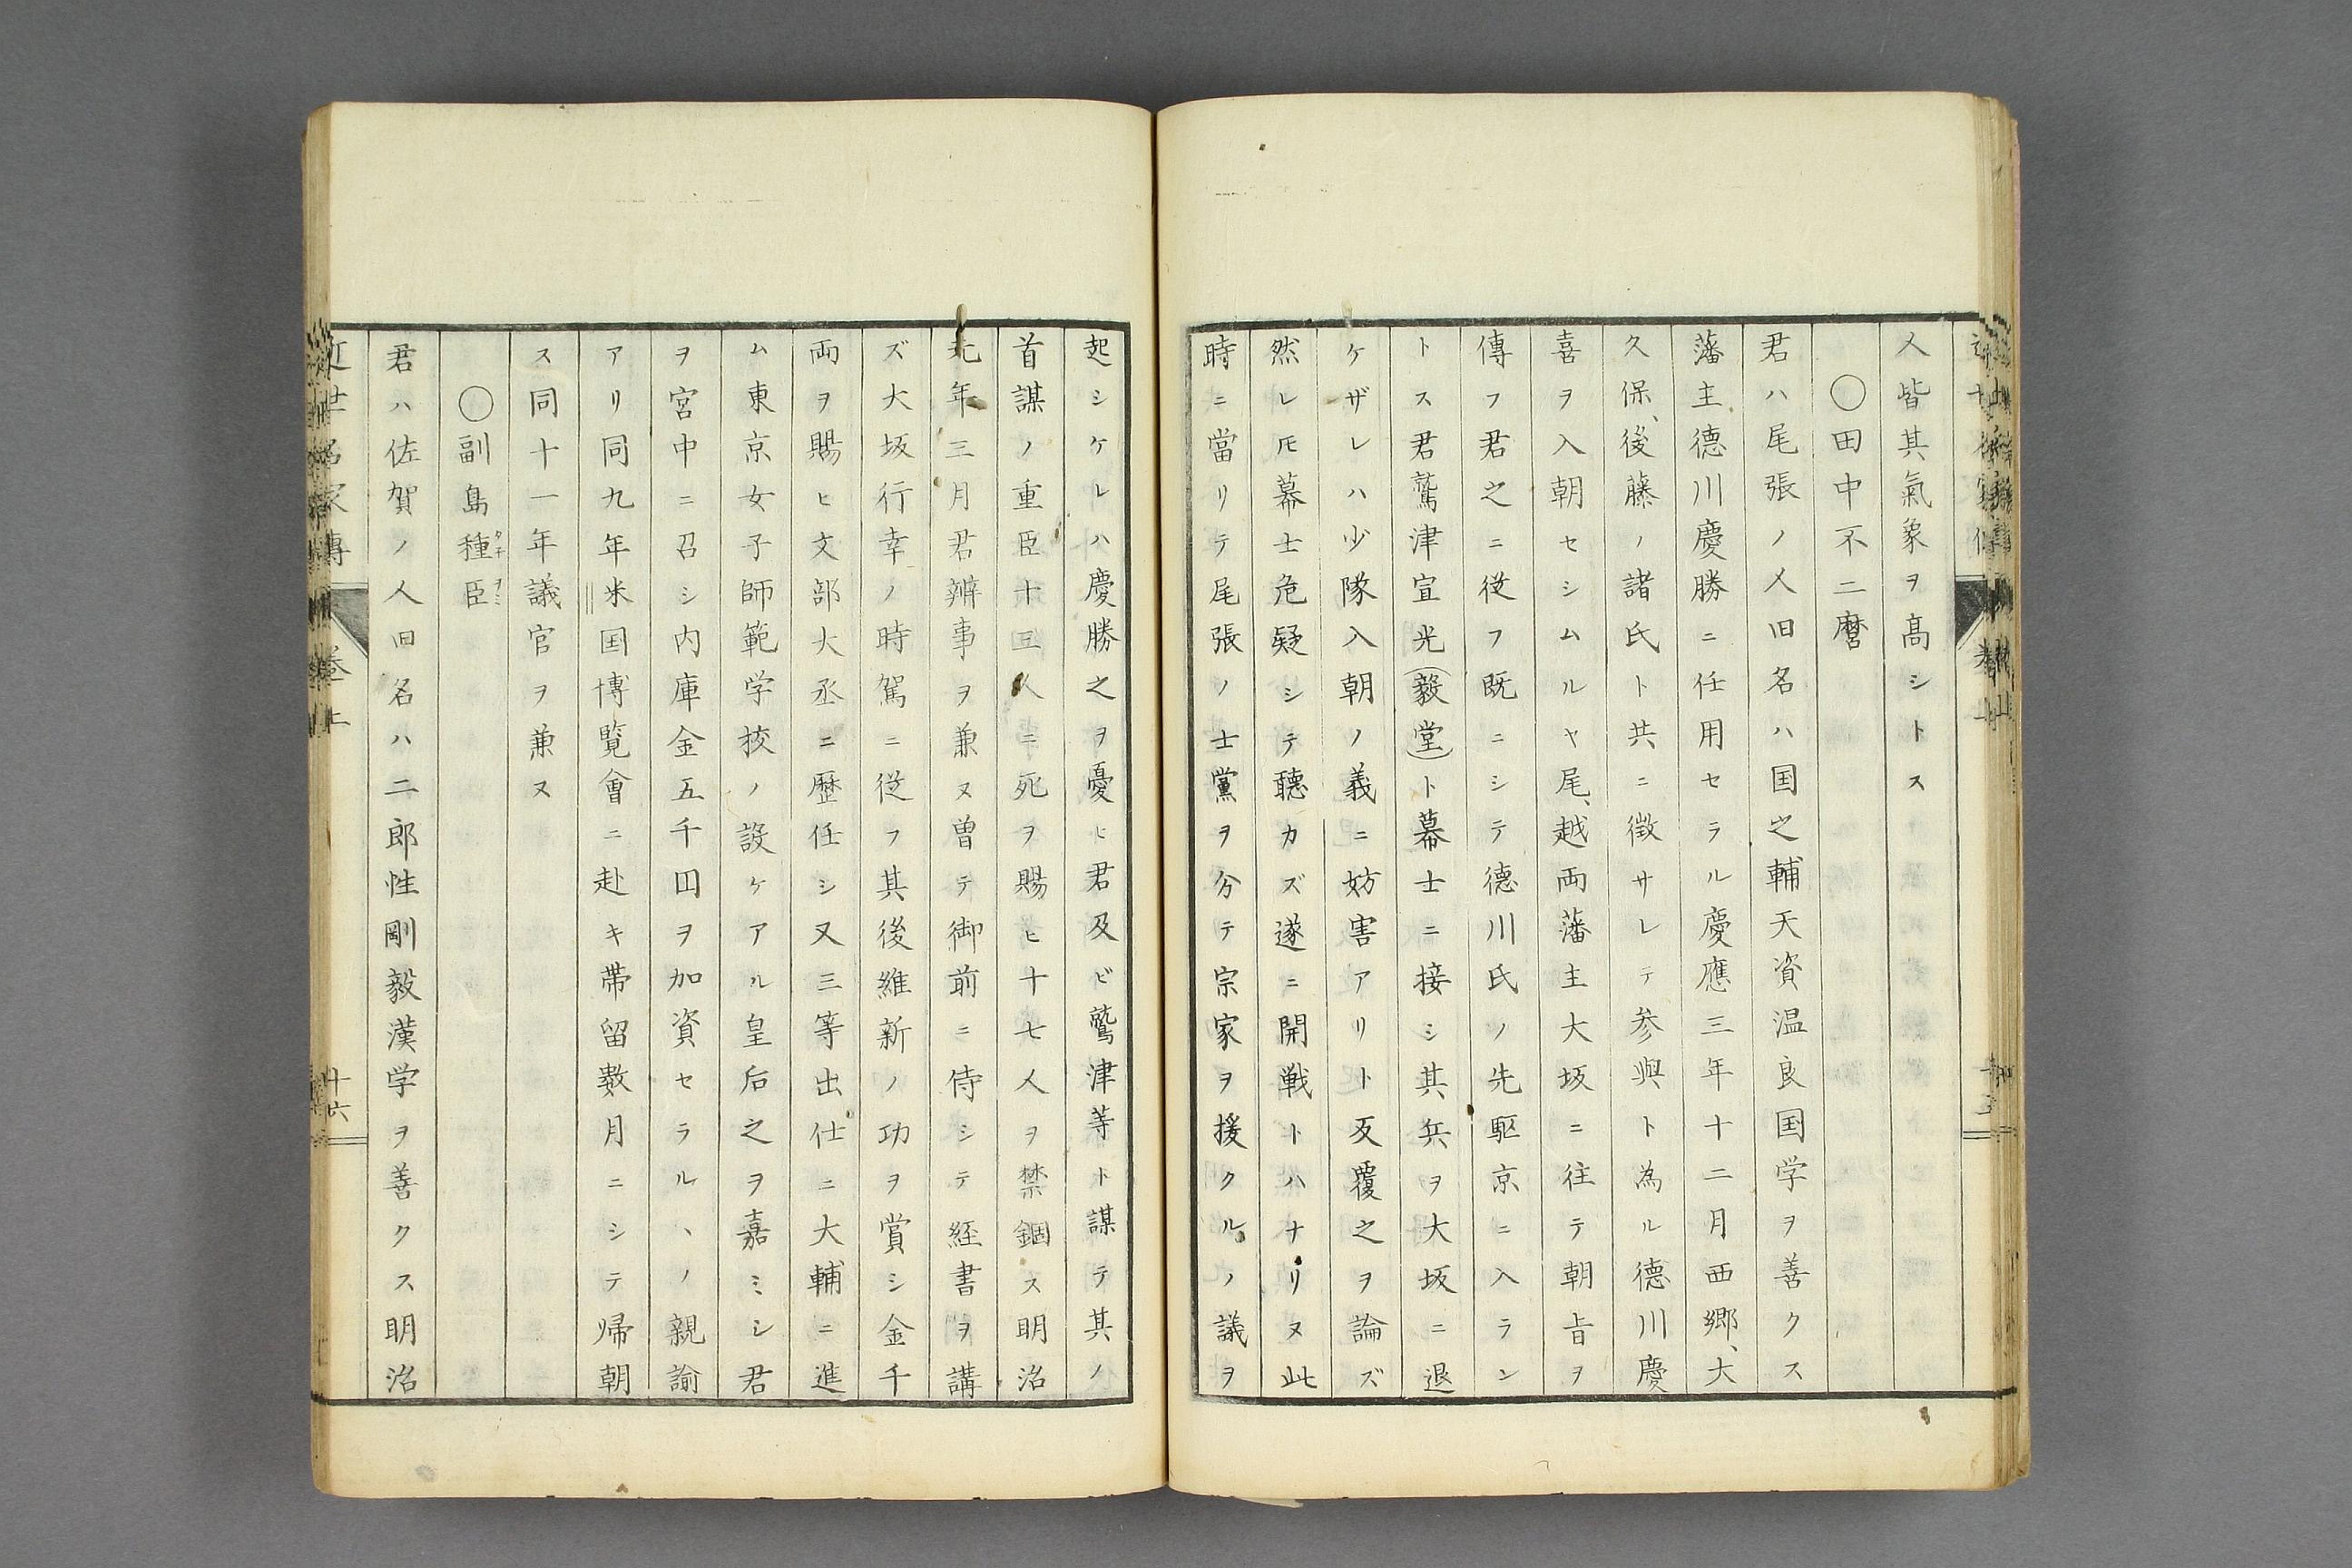 人皆其氣象ヲ髙シトス
〇田中不二麿
君ハ尾張ノ人旧名ハ国之輔天資温良国学ヲ善クス
藩主徳川慶勝ニ任用セラル慶應三年十二月西郷、大
久保、後藤ノ諸氏ト共ニ徴サレテ参與ト為ル徳川慶
喜ヲ入朝セシムルヤ尾、越両藩主大坂ニ往テ朝旨ヲ
傳フ君之ニ従フ既ニシテ徳川氏ノ先駆京ニ入ラン
トス君鷲津宣光(毅堂)ト幕士ニ接シ其兵ヲ大坂ニ退
ケザレハ少隊入朝ノ義ニ妨害アリト反覆之ヲ論ズ
然レ𪜈幕士危疑シテ聴カズ遂ニ開戦トハナリヌ此
時ニ當リテ尾張ノ士黨ヲ分テ宗家ヲ援クルノ議ヲ
起シケレハ慶勝之ヲ憂ヒ君及ビ鷲津等ト謀テ其ノ
首謀ノ重臣十三人ニ死ヲ賜ヒ十七人ヲ禁錮ス明治
元年三月君辨事ヲ兼ヌ曽テ御前ニ侍シテ経書ヲ講
ズ大坂行幸ノ時駕ニ従フ其後維新ノ功ヲ賞シ金千
両ヲ賜ヒ文部大丞ニ歴任シ又三等出仕ニ大輔ニ進
ム東京女子師範学校ノ設ケアル皇后之ヲ嘉ミシ君
ヲ宮中ニ召シ内庫金五千円ヲ加資セラルヽノ親諭
アリ同九年米国博覧會ニ赴キ帯留數月ニシテ帰朝
ス同十一年議官ヲ兼ヌ
〇副島種臣
タネヲミ
君ハ佐賀ノ人旧名ハ二郎性剛毅漢学ヲ善クス明治
近世名家傳 巻上 十六